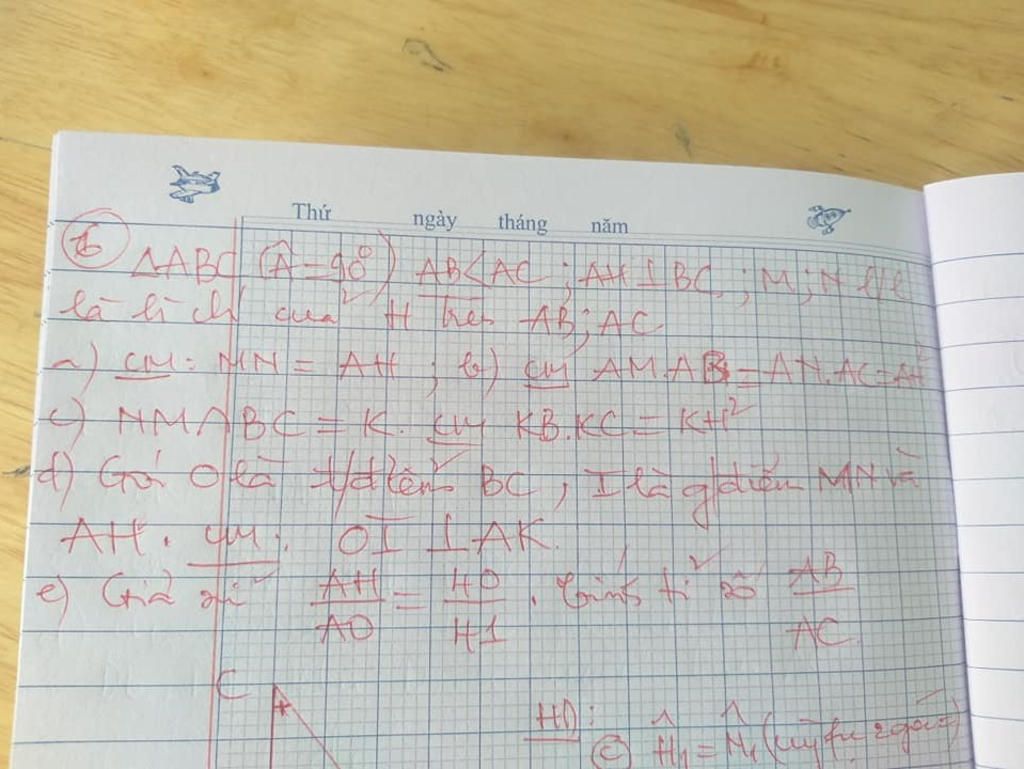 Thứ ngày tháng năm
6 ΔABC (Â=90°) AB<AC; AH⊥BC; M;N l/l
là h/ch của H trên AB; AC
a) cm: MN = AH ; b) cm AM.AB=AN.AC=AH²
c) NM∩BC = K. cm KB.KC=KH²
d) Gọi O là t/điểm BC, I là g/điểm MN và
AH. cm: OI ⊥ AK.
e) Giả sử AH/AO = HO/HI . Tính tỉ số AB/AC
C
HD:
c) Ĥ₁ = M̂₁ (cùng phụ 2 góc =)